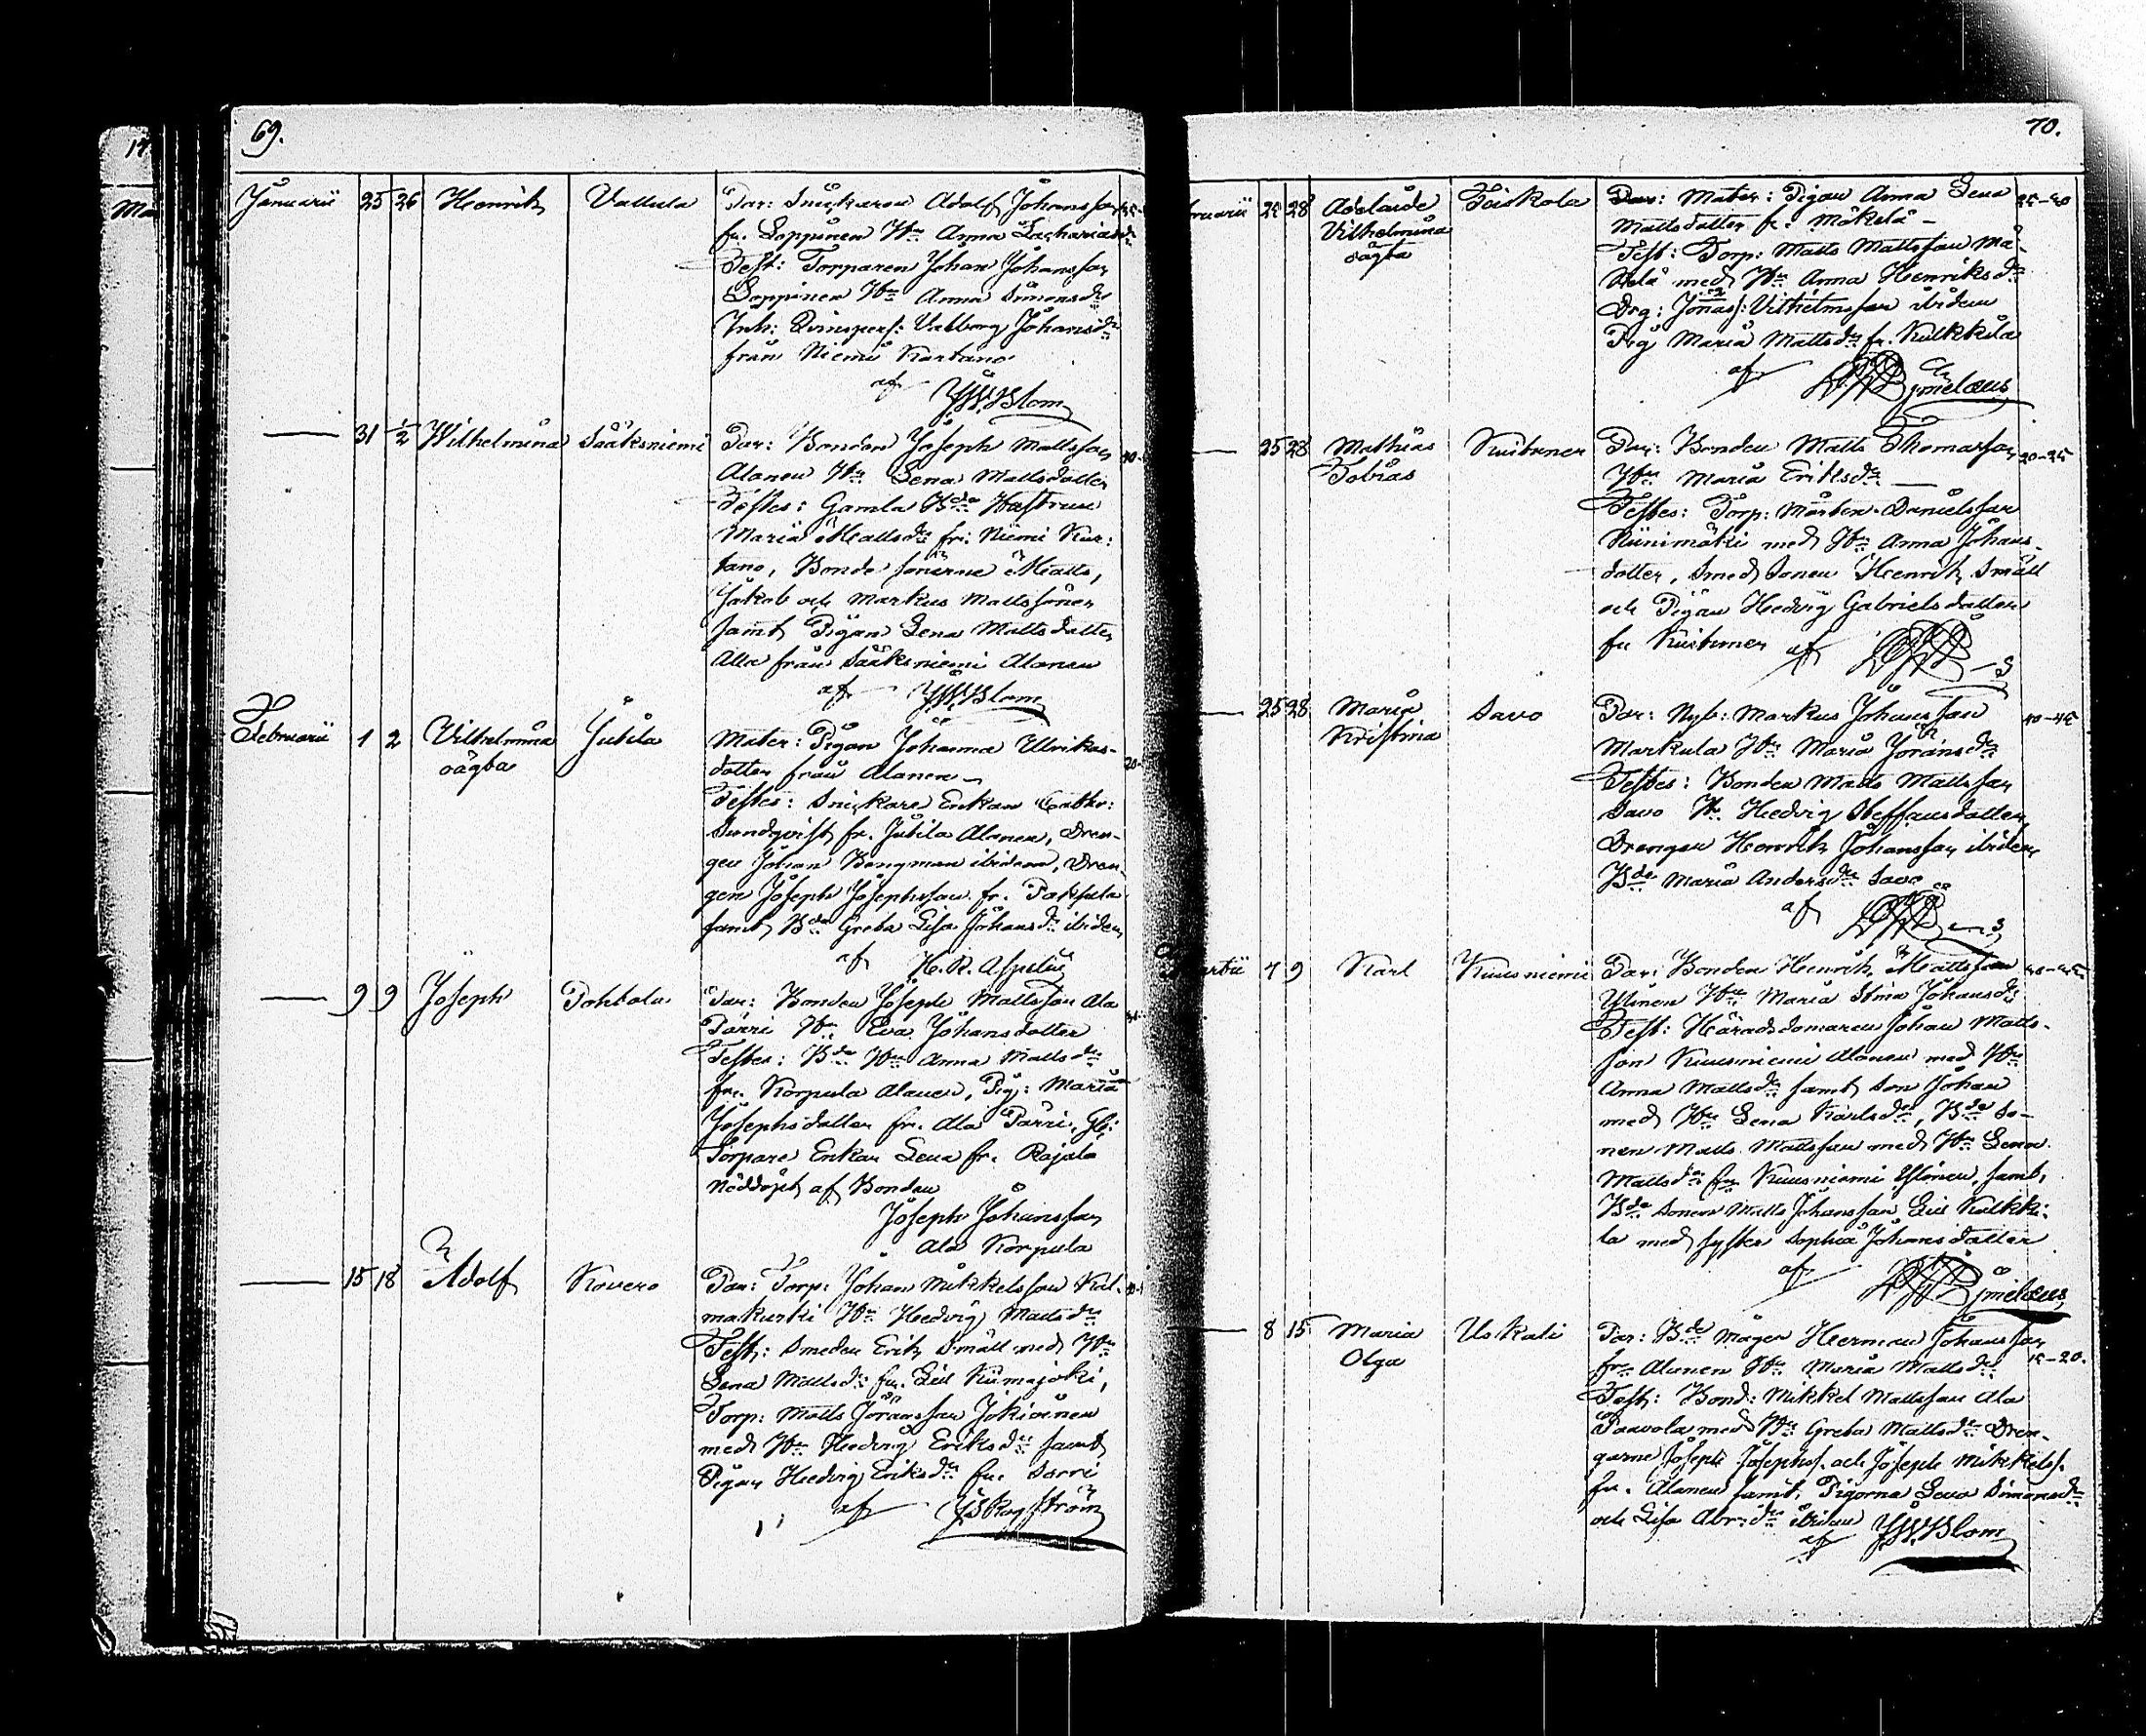 69.
Januarii 25 26 Henrik Vallula Par: Snickaren Adolf Johansson
fr. Loppinen Hu Anna Zachariædr
Test: Torparen Johan Johansson
Loppinen Hu Anna Simonsdr
Inh: Qvinspers: Valborg Johansdr
från Niemi Kartano
af JW Blom
31 1/2 Wilhelmina Sääksniemi Par: Bonden Joseph Mattsson
Alanen Hu Lena Mattsdotter
Testes: Gamla Bde Hustrun
Maria Mattsdr fr: Niemi Kar:
tano, Bonde sönerne Matts,
Jakob och Markus Mattssöner
samt Pigan Lena Mattsdotter
Alla från Sääksniemi Alanen
af JW Blom
Februarii 1 2 Vilhelmina Jutila Mater: Pigan Johanna Ulrikas-
oägta dotter från Alanen
Testes: Snickare Enkan Cathr:
Sundqvist fr. Jutila Alanen, Dren-
gen Johan Bengman ibidem, Dren-
gen Joseph Josephsson fr.
samt Bde Greta Lisa Johansdr ibidem
af H. R. Aspelin
9 9 Joseph Pohtola Par: Bonden Joseph Mattsson Ala
Pärri Hu Eva Johansdotter
Testes: Bde Hu Anna Mattsdr
fr. Korpula Alanen, Pig: Maria
Josephsdotter fr. Ala Pärri, Gl:
Torpare Enkan Lena fr. Rajala
Nöddöpt af Bonden
Joseph Johansson
Ala Korpula
15 18 Adolf Kovero Par: Torp: Johan Mikkelsson Kal-
makurki Hu Hedvig Mattsdr
Test: Smeden Erik Smäll med Hu
Lena Mattsdr fr. Lill Kiimajoki,
Torp: Matts Göransson Jokioinen
med Hu Hedvig Eriksdr samt
Pigan Hedvig Eriksdr fr. Sorri
af
70.
24 28 Adelaide Teiskola Par: Mater: Pigan Anna Lena
Vilhelmina Mattsdotter fr. Mäkelä
oägta Test: Torp: Matts Mattsson Mä-
kelä med Hu Anna Henriksdr
Drg: Jonas: Vilhelmsson ibidem
Pig Maria Mattsdr fr. Kulkkila
af
25 28 Mathias Kuitunen Par: Bonden Matts Thomasson 20-25
Tobias Hu Maria Eriksdr
Testes: Torp: Mårten Danielsson
Niinimäki med Hu Anna Johans-
dotter, Smed Sonen Henrik Smäll
och Pigan Hedvig Gabrielsdotter
fr Kuitunen af
25 28 Maria Savo Par: Nyb: Markus Johansson 40-45
Kristina Markula Hu Maria Göransdr
Testes: Bonden Matts Mattsson
Savo Hu Hedvig Steffansdotter,
Drengen Henrik Johansson ibidem
Bde Maria Andersdr Savo
af
Martii 7 9 Karl Kuusniemi Par: Bonden Henrik Mattsson
Ylinen Hu Maria Stina Johansdr
Test: Häradsdomaren Johan Matts-
son Kuusniemi Alanen med Hu
Anna Mattsdr samt Son Johan
med Hu Lena Karlsdr, Bde So-
nen Matts Mattsson med Hu Lena
Mattsdr fr Kuusniemi Ylinen, samt
Bde Sonen Matts Johansson Lill Kulkki-
la med syster Sophia Johansdotter
af
8 15 Maria Uskali Par: Bde Mågen Herman Johansson
Olga fr. Alanen Hu Maria Mattsdr 15-20.
Test: Bond: Mikkel Mattsson Ala
Paavola med Hu Greta Mattsdr Dren-
garne Joseph Josephss. och Joseph Mikkelss.
fr. Alanen samt Pigorna Lena Simonsdr
och Lisa Abr:dr ibidem
af JW Blom